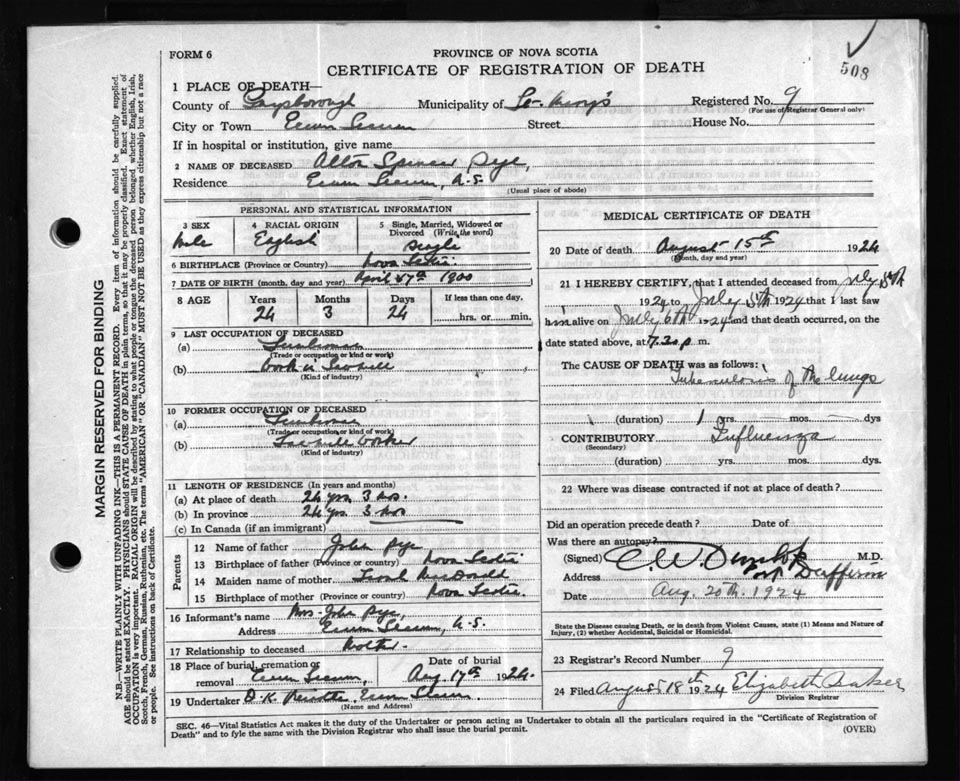 508
FORM 6
PROVINCE OF NOVA SCOTIA
CERTIFICATE OF REGISTRATION OF DEATH
1 PLACE OF DEATH—
County of Guysborough Municipality of St. Mary's Registered No. 9
(For use of Registrar General only)
City or Town Ecum Secum Street House No.
If in hospital or institution, give name
2 NAME OF DECEASED Alton Spencer Pye,
Residence Ecum Secum, N.S.
(Usual place of abode)
PERSONAL AND STATISTICAL INFORMATION
3 SEX Male
4 RACIAL ORIGIN English
5 Single, Married, Widowed or Divorced (Write the word) Single
6 BIRTHPLACE (Province or Country) Nova Scotia
7 DATE OF BIRTH (month, day, and year) April 1900
8 AGE Years 24 Months 3 Days 24 If less than one day, hrs. or min.
9 LAST OCCUPATION OF DECEASED
(a)
(Trade or occupation or kind or work)
(b)
(Kind of industry)
10 FORMER OCCUPATION OF DECEASED
(a)
(Trade or occupation or kind or work)
(b)
(Kind of industry)
11 LENGTH OF RESIDENCE (In years and months)
(a) At place of death 24 yrs. 3 mos.
(b) In province 24 yrs. 3 mos
(c) In Canada (if an immigrant)
Parents
12 Name of father John Pye
13 Birthplace of father (Province or country) Nova Scotia
14 Maiden name of mother McDonald
15 Birthplace of mother (Province or country) Nova Scotia
16 Informant's name Mrs. John Pye
Address Ecum Secum, N.S.
17 Relationship to deceased Mother
18 Place of burial, cremation or removal Ecum Secum, Date of burial Aug. 17th 1924.
19 Undertaker O.K. Ecum Secum
(Name and Address)
MEDICAL CERTIFICATE OF DEATH
20 Date of death August 15th 1924
(Month, day and year)
21 I HEREBY CERTIFY, that I attended deceased from July
1924 to July 5th 1924 that I last saw
him alive on July 6th 1924 and that death occurred, on
date stated above, at 7.30 p. m.
The CAUSE OF DEATH was as follows:
Tuberculosis of the lungs
(duration) 1 yrs. mos. dys
CONTRIBUTORY Influenza
(Secondary)
(duration) yrs. mos. dys.
22 Where was disease contracted if not at place of death?
Did an operation precede death? Date of
Was there an autopsy?
(Signed) C. W. Dunlop M.D.
Address Pt Dufferin
Date Aug. 20th. 1924
State the Disease causing Death, or in death from Violent Causes, state (1) Means and Nature of
Injury, (2) whether Accidental, Suicidal or Homicidal.
23 Registrar's Record Number 9
24 Filed August 18th 1924 Elizabeth Baker
Division Registrar
SEC. 46—Vital Statistics Act makes it the duty of the Undertaker or person acting as Undertaker to obtain all the particulars required in the "Certificate of Registration of
Death" and to fyle the same with the Division Registrar who shall issue the burial permit.
(OVER)
MARGIN RESERVED FOR BINDING
N.B.—WRITE PLAINLY WITH UNFADING INK—THIS IS A PERMANENT RECORD. Every item of information should be carefully supplied.
AGE should be stated EXACTLY. PHYSICIANS should STATE CAUSE OF DEATH in plain terms, so that it may be properly classified. Exact statement of
OCCUPATION is very important. RACIAL ORIGIN will be described by stating to what people or tongue the deceased person belonged, whether English, Irish,
Scotch, French, German, Russian, Ruthenian, etc. The terms "AMERICAN" OR "CANADIAN" MUST NOT BE USED as they express citizenship but not a race
or people. See instructions on back of Certificate.